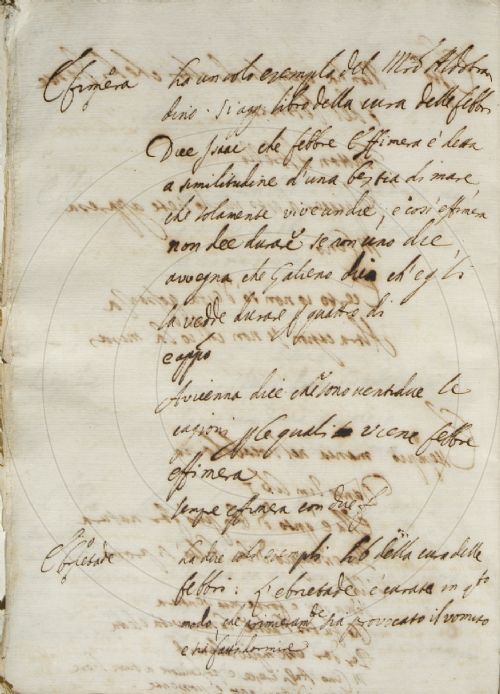 Efimera ha un solo esempio del M.o Aldobran
dino. si agg. libro della cura delle febbri
Dice Isaac che febbre Effimera è detta
a similitudine d'una bestia di mare,
che solamente vive un die, e così effimera
non dee durare se non uno die,
avvegna che Galieno dica ch'egli
la vedde durare quattro di
e appo
Avicenna dice che sono ventidue le
cagioni p le quali viene febbre
effimera
sempre effimera con due f
Ebrietade ha due soli esempli. lib della cura delle
febbri: L'ebrietade è curata in q.to
modo, che primieram.te ha provocato il vomito
e ha fatto dormire